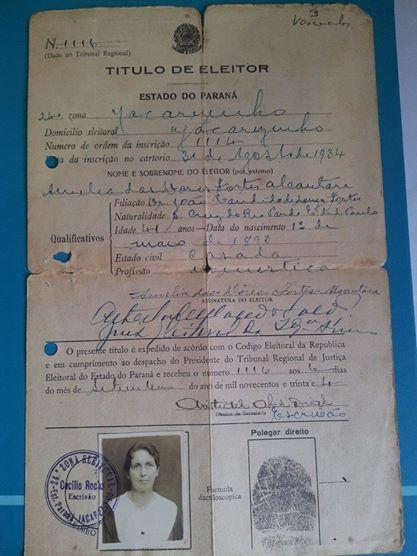 3
N. 1116
(Dado no Tribunal Regional)
TITULO DE ELEITOR
ESTADO DO PARANÁ
24ª zona Jacarezinho
Domicilio eleitoral Jacarezinho
Numero de ordem da inscrição 1114
Data da inscrição no cartorio 31 de Agosto de 1934
NOME E SOBRENOME DO ELEITOR (por extenso)
Amelia das Dores Fortes Alcantara
Filiação Dr. João Candido de Souza Fortes
Naturalidade S. Cruz do Rio Pardo Est. de S. Paulo
Qualificativos
Idade 41 anos—Data do nascimento 1º de
maio de 1893
Estado civil Casada
Profissão domestica
Amelia das Dores Fortes Alcantara
ASSINATURA DO ELEITOR
O presente titulo é expedido de acôrdo com o Codigo Eleitoral da Republica
e em cumprimento ao despacho do Presidente do Tribunal Regional de Justiça
Eleitoral do Estado do Paraná e recebeu o numero 1116 aos 6 dias
do mês de setembro do ano de mil novecentos e trinta e 4
Escrivão
ZONA ELEITORAL
Cecilio Rocha
Escrivão
Formula
dactiloscopica
Polegar direito